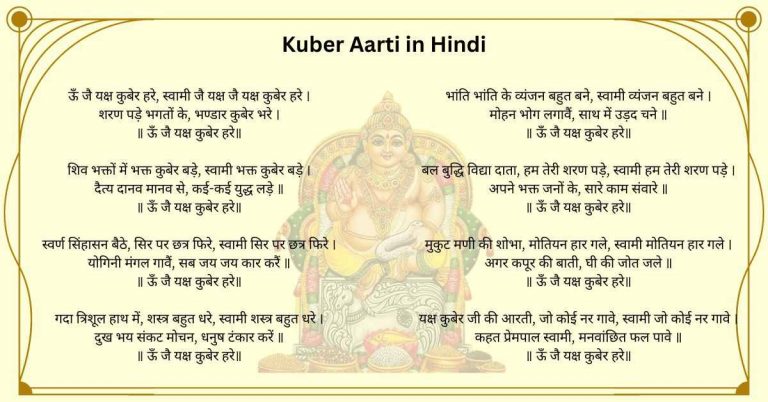 Kuber Aarti in Hindi
ऊँ जै यक्ष कुबेर हरे, स्वामी जै यक्ष जै यक्ष कुबेर हरे ।
शरण पड़े भगतों के, भण्डार कुबेर भरे ।
॥ ऊँ जै यक्ष कुबेर हरे॥
शिव भक्तों में भक्त कुबेर बड़े, स्वामी भक्त कुबेर बड़े ।
दैत्य दानव मानव से, कई-कई युद्ध लड़े ॥
॥ ऊँ जै यक्ष कुबेर हरे॥
स्वर्ण सिंहासन बैठे, सिर पर छत्र फिरे, स्वामी सिर पर छत्र फिरे ।
योगिनी मंगल गावैं, सब जय जय कार करैं ॥
॥ ऊँ जै यक्ष कुबेर हरे॥
गदा त्रिशूल हाथ में, शस्त्र बहुत धरे, स्वामी शस्त्र बहुत धरे ।
दुख भय संकट मोचन, धनुष टंकार करें ॥
॥ ऊँ जै यक्ष कुबेर हरे॥
भांति भांति के व्यंजन बहुत बने, स्वामी व्यंजन बहुत बने ।
मोहन भोग लगावैं, साथ में उड़द चने ॥
॥ ऊँ जै यक्ष कुबेर हरे॥
बल बुद्धि विद्या दाता, हम तेरी शरण पड़े, स्वामी हम तेरी शरण पड़े ।
अपने भक्त जनों के, सारे काम संवारे ॥
॥ ऊँ जै यक्ष कुबेर हरे॥
मुकुट मणी की शोभा, मोतियन हार गले, स्वामी मोतियन हार गले ।
अगर कपूर की बाती, घी की जोत जले ॥
॥ ऊँ जै यक्ष कुबेर हरे॥
यक्ष कुबेर जी की आरती, जो कोई नर गावे, स्वामी जो कोई नर गावे ।
कहत प्रेमपाल स्वामी, मनवांछित फल पावे ॥
॥ ऊँ जै यक्ष कुबेर हरे॥